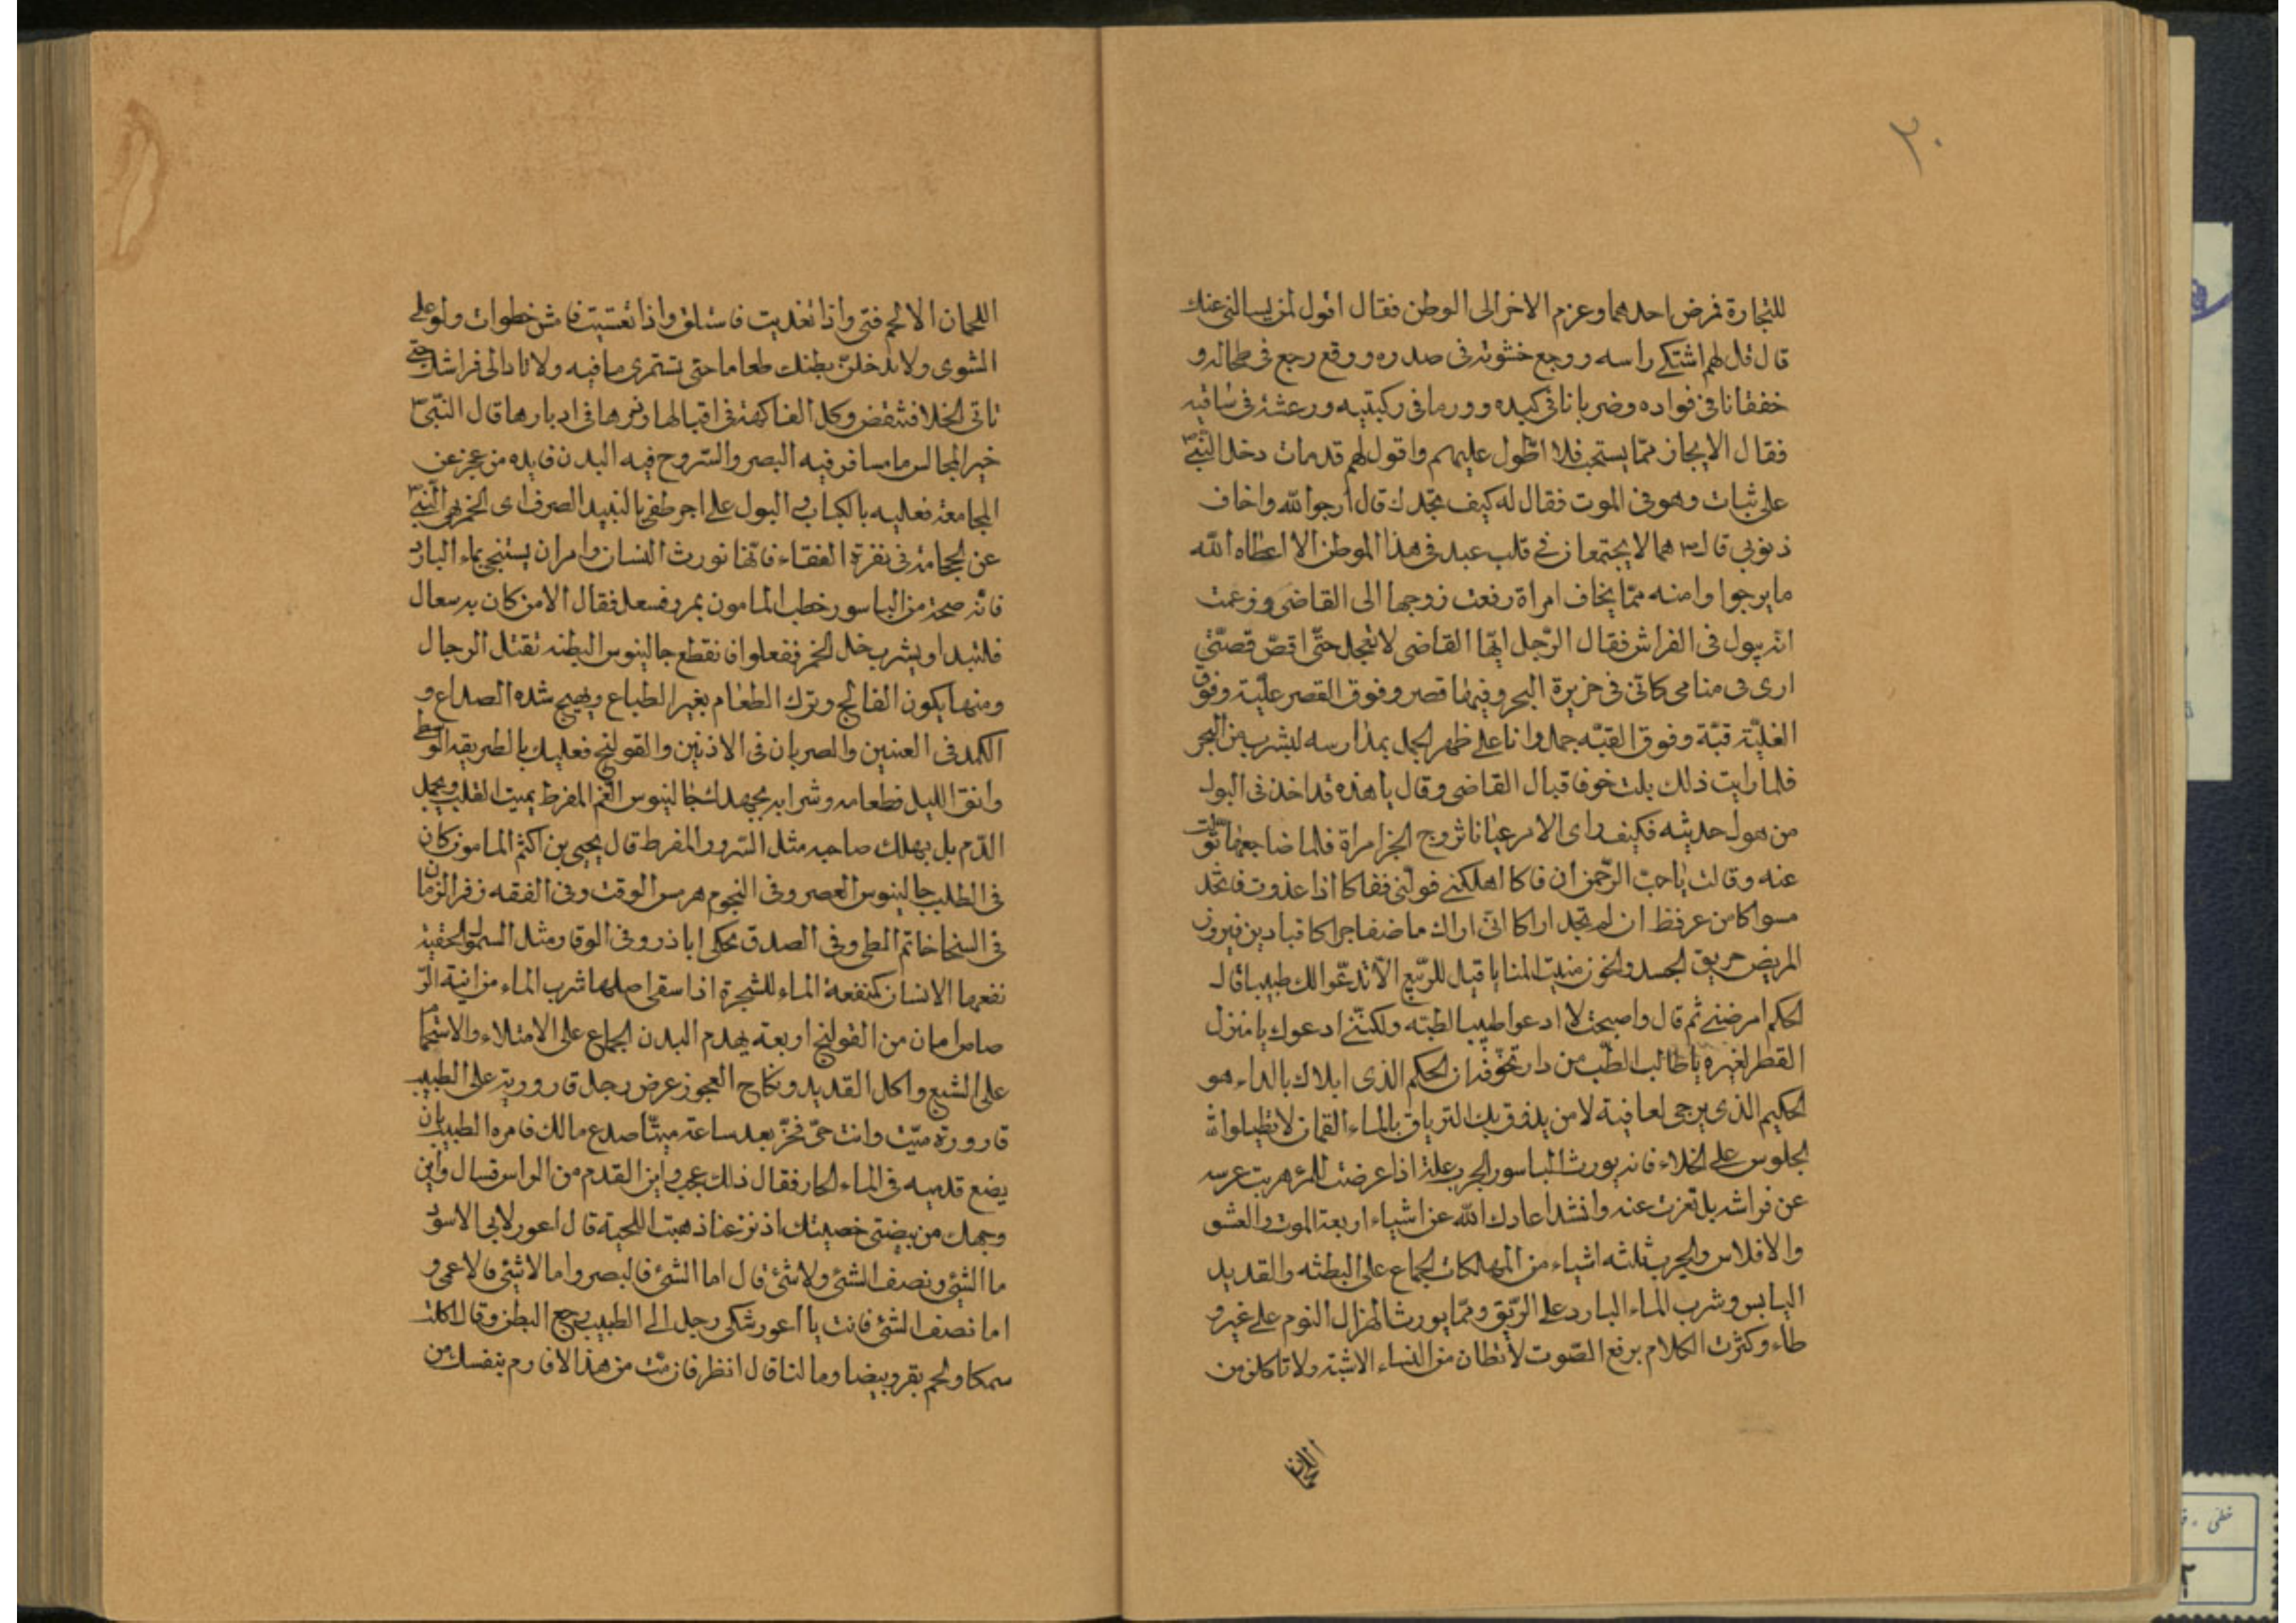 ٢٠
للتجارة فمرض احدهما وعزم الاخر الى الوطن فقال اقول لمن يسالنى عنك
قال قل لهم اشتكى راسه ووجع خشونه فى صدره ووقع رجع فى طحاله و
خفقانا فى فواده وضربانا فى كبده وورما فى ركبتيه ورعشة فى ساقيه
فقال الايجاز مما يستحب فلا اطول عليهم واقول لهم قد مات دخل النبى
على ثبات وهو فى الموت فقال له كيف تجدك قال ارجوا الله واخاف
ذنوبى قال هما لا يجتمعان فى قلب عبد فى هذا الموطن الا اعطاه الله
ما يرجوا وامنه مما يخاف امراة رفعت زوجها الى القاضى وزعمت
انه يبول فى الفراش فقال الرجل ايها القاضى لا تعجل حتى اقص قصتى
ارى فى منامى كانى فى جزيرة البحر وفيها قصر وفوق القصر علية وفوق
العلية قبة وفوق القبه جمل وانا على ظهر الجمل يمد راسه ليشرب من البحر
فلما رايت ذلك بلت خوفا قبال القاضى وقال يا هذه قد اخذنى البول
من هول حديثه فكيف راى الامر عيانا تزوج امراة فلما ضاجعها
عنه وقالت يا حب الرحمن ان فاكا اهلكنى فولنى قفاكا اذا غدوت فاتخذ
مسواكا من عرفظ ان لم تجد اراكا انى اراك ماضغا قباد بن فيروز
المريض حريق الجسد قيل للربيع الا ندعوا لك طبيبا قال
الحكم امرضنى ثم قال واصبحت لا ادعوا طبيبا لطبه ولكننى ادعوك يا منزل
القطر لغيره يا طالب الطب من دا تخوفه ان الحكم الذى ابلاك بالداء هو
الحكيم الذى يرجى لعافية لا من يذوق بك الترياق بالماء القمان لا تطيلوا
الجلوس على الخلاء فانه يورث الباسور الجرب علة اذا عرضت للمرء هربت عرسه
عن فراشه بل تعزبت عنه وانشد اعاذك الله عن اشياء اربعة الموت والعشق
والافلاس والجرب ثلثه اشياء من المهلكات الجماع على البطنه والقديد
اليابس وشرب الماء البارد على الريق ومما يورث الهزال النوم على غير و
طاء وكثرت الكلام برفع الصوت لا تطان من النساء الا شبة ولا تاكلن من
اللحمان
اللحمان الا لحم فتى واذا تغديت فاستلق واذا تعشيت فامش خطوات ولو على
الشوى ولا تدخلن بطنك طعاما حتى تستمرى ما فيه ولا تاد الى فراشك حتى
تاتى الخلا فتنقض وكل الفاكهة فى اقبالها وذرها فى ادبارها قال النبى
خير المجالس ما سافر فيه البصر والتروح فيه البدن فايده من عجز عن
المجامعة فعليه بالكباب والبول على اجر طفى بالنبيذ الصرف اى الخمر نهى النبى
عن الحجامة فى نقرة القفاء فانها تورث النسان وامر ان يستنجى بماء البارد
فانه صحة من الباسور خطب المامون بمرو فسعل فقال الا من كان به سعال
فليتبد او يشرب خل الخمر ففعلوا فانقطع جالينوس البطنه تقتل الرجال
ومنها يكون الفالج وترك الطعام بغير الطباع ويهيج شده الصداع و
الكمد فى العنين والضربان فى الاذنين والقولنج فعليك بالطريقه الوسطى
واتق الليل فطعامه وشرابه بجهدك جالينوس الغم المفرط يميت القلب ويجمل
الدم بل يهلك صاحبه مثل السرور المفرط قال يحيى بن اكثم المامون كان
فى الطلب جالينوس العصر وفى النجوم هرمس الوقت وفى الفقه زفر الزمان
فى السخا خاتم الطى وفى الصدق يحكى اباذر وفى الوقا ومثل السمؤل الحقنة
نفعها الانسان كمنفعة الماء للشجرة اذا سقى اصلها شرب الماء من انية الر
صاص امان من القولنج اربعة يهدم البدن الجماع على الامتلاء والاستحمام
على الشبع واكل القديد ونكاح العجوز عرض رجل قارورته على الطبيب
قارورة ميت وانت حى فخر بعد ساعة ميتا صدع مالك فامره الطبيب بان
يضع قدميه فى الماء الحار فقال ذلك عجب واين القدم من الراس قال واين
وجهك من بيضتى خصيتك اذ نزعتا ذهبت اللحية قال اعور لابى الاسود
ما الشئ ونصف الشئ ولا شئ قال اما الشئ فالبصر واما لا شئ فالاعمى و
اما نصف الشئ فانت يا اعور شكى رجل الى الطبيب وجع البطن وقال اكلت
سمكا ولحم بقر وبيضا وما لنا قال انظر فان مت من هذا الا فارم بنفسك من
خطى